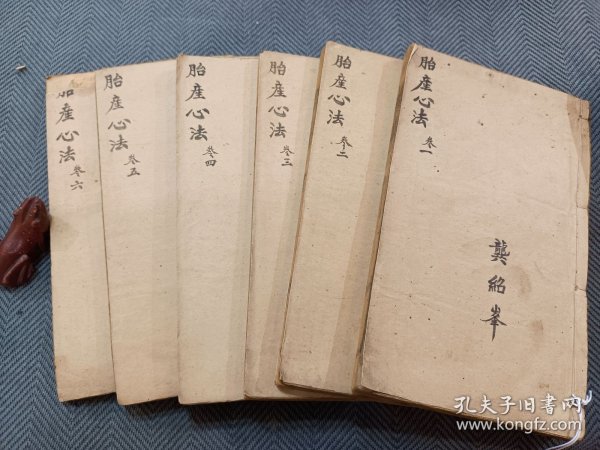 胎産心法 卷一
龔紹峯
胎産心法 卷二
胎産心法 卷三
胎産心法 卷四
胎産心法 卷五
胎産心法 卷六
孔夫子旧书网
www.kongfz.com